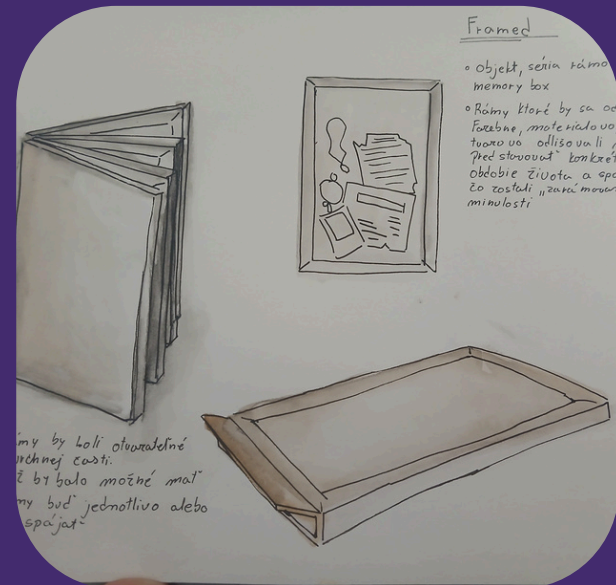 Framed
• Objekt, séria rámo
memory box
• Rámy ktoré by sa od
Farebne, materialovo
tvarovo odlišovali
Predstavovať konkrét
obdobie života a spo
čo zostali „zarámova
minulosti
my by boli otvárateľné
vrchnej časti.
ž by bolo možné mať
my buď jednotlivo alebo
spájať